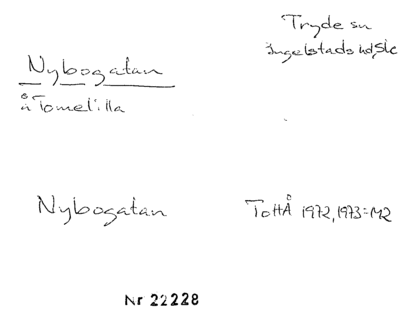 Tryde sn
Ingelstads hd, Sk
Nybogatan
å Tomelilla
Nybogatan
ToHÅ 1972, 1973=M2
Nr 22228